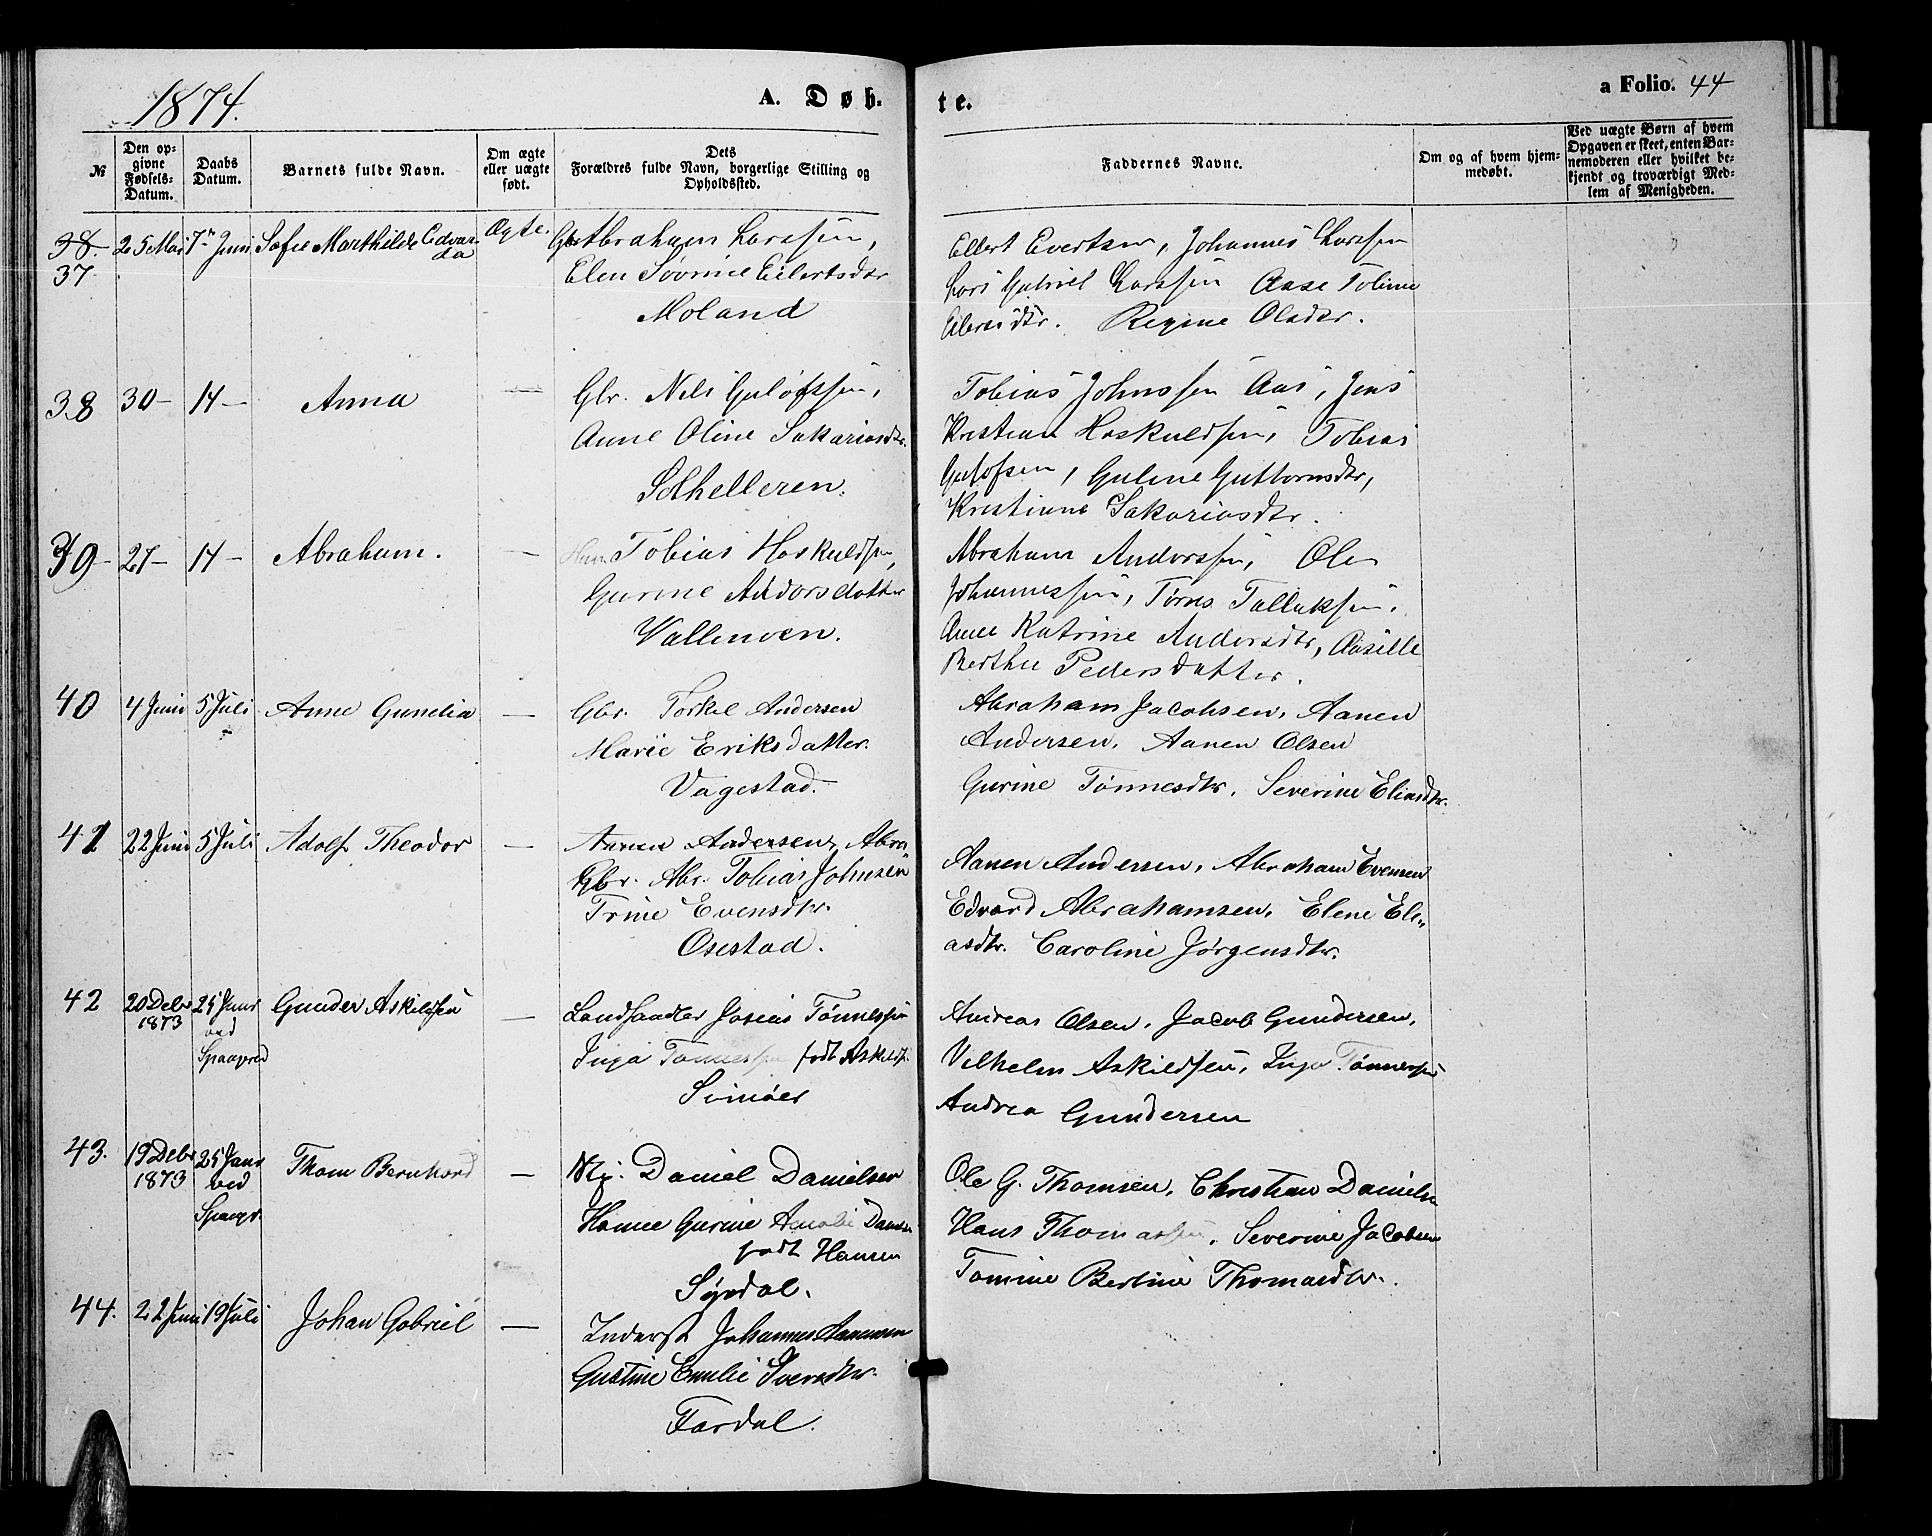 1874.
A. Døb-
te.
a Folio. 44
№
Den op-
givne
Fødsels-
Datum.
Daabs
Datum.
Barnets fulde Navn.
Om ægte
eller uægte
født.
Dets
Forældres fulde Navn, borgerlige Stilling og
Opholdssted.
Faddernes Navne.
Om og af hvem hjem-
medøbt.
Ved uægte Børn af hvem
Opgaven er skeet, enten Bar-
nemoderen eller hvilket be-
kjendt og troværdigt Med-
lem af Menigheden.
38.
37
25 Mai
7de Juni
Sofie Marthilde Edvar-
da
Ægte.
Gbr Abraham Larssen,
Elen Sovrine Eilertsdtr
Moland
Ellert Evertsen, Johannes Larssen
Lars Gabriel Larssen Aase Toline
Eilertsdtr. Regine Olsdtr.
38
30 —
14 —
Anna
—
Gbr. Nils Guløfssen,
Anne Oline Sakariasdtr.
Solhelleren.
Tobias Johnssen Aas, Jens
Kristian Hoskuldsen, Tobias
Guløfsen, Guline Guttormsdtr,
Kristiane Sakariasdtr.
39 —
27 —
14 —
Abraham.
—
Tobias Hoskuldsen,
Gurine Andorsdatter
Vallemoen.
Abraham Andorssen, Ole
Johannessen, Tørres Tallaksen.
Anne Katrine Andorsdtr, Aasille
Berthe Pedersdatter.
40
4 Juni
5 Juli
Anne Gunelia
—
Gbr. Torkel Andersen
Marie Eriksdatter.
Vagestad.
Abraham Jacobsen, Aanen
Andersen, Aanen Olsen
Gurine Tønnesdtr, Severine Eliasdtr.
41
22 Juni
5 Juli
Adolf Theodor
—
Aanen Andersen, Abra
Gbr. Abr. Tobias Johnsen
Trine Evensdtr.
Osestad.
Aanen Andersen, Abraham Evensen
Edvard Abrahamsen, Elene Eli-
asdtr. Caroline Jørgensdtr.
42
20 Debr
1873
25 Janr
ved
Spangred
Gunder Askildsen
—
Landhandler Josias Tønnessen
Inga Tønnessen født Askildsen
Svinøer
Andreas Olsen, Jacob Gundersen,
Vilhelm Askildsen, Inger Tønnessen
Andrea Gundersen
43.
19 Debr
1873
25 Janr
ved
Spangr.
Thom Bernhard
—
Daniel Danielsen
Hanne Gurine Amalie
født Hansen
Syrdal.
Ole G. Thomsen, Christian Danielsn
Hans Thomassen, Severine Jacobsen
Tomine Bertine Thomasdtr.
44.
22 Juni
19 Juli
Johan Gabriel
—
Inderst Johannes Aanensen
Gustine Emilie Iversdtr.
Fardal.